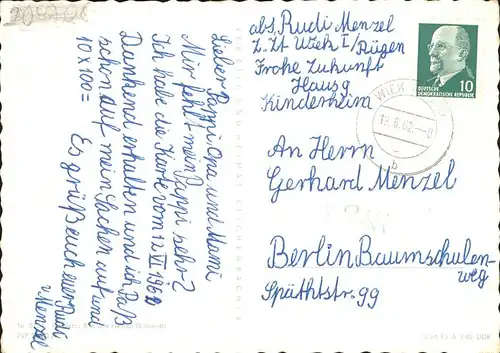 Lieber Pappi, Opa und Mami
Mir fehlt mein Pappi sehr?
Ich habe die Karte vom 12 VI 1962
Dankend erhalten und ich paß
schon auf mein Sachen auf und
10 x 100 =
Es grüß euch euer Rudi
Menzel
abs. Rudi Menzel
z. Zt Wiek I/
Rügen
Frohe Zukunft
Haus 9
Kinderheim
DEUTSCHE
DEMOKRATISCHE REPUBLIK
10
WIEK
18.6.62.
b
An Herrn
Gerhard Menzel
Berlin Baumschulen-
weg
Späthtstr. 99